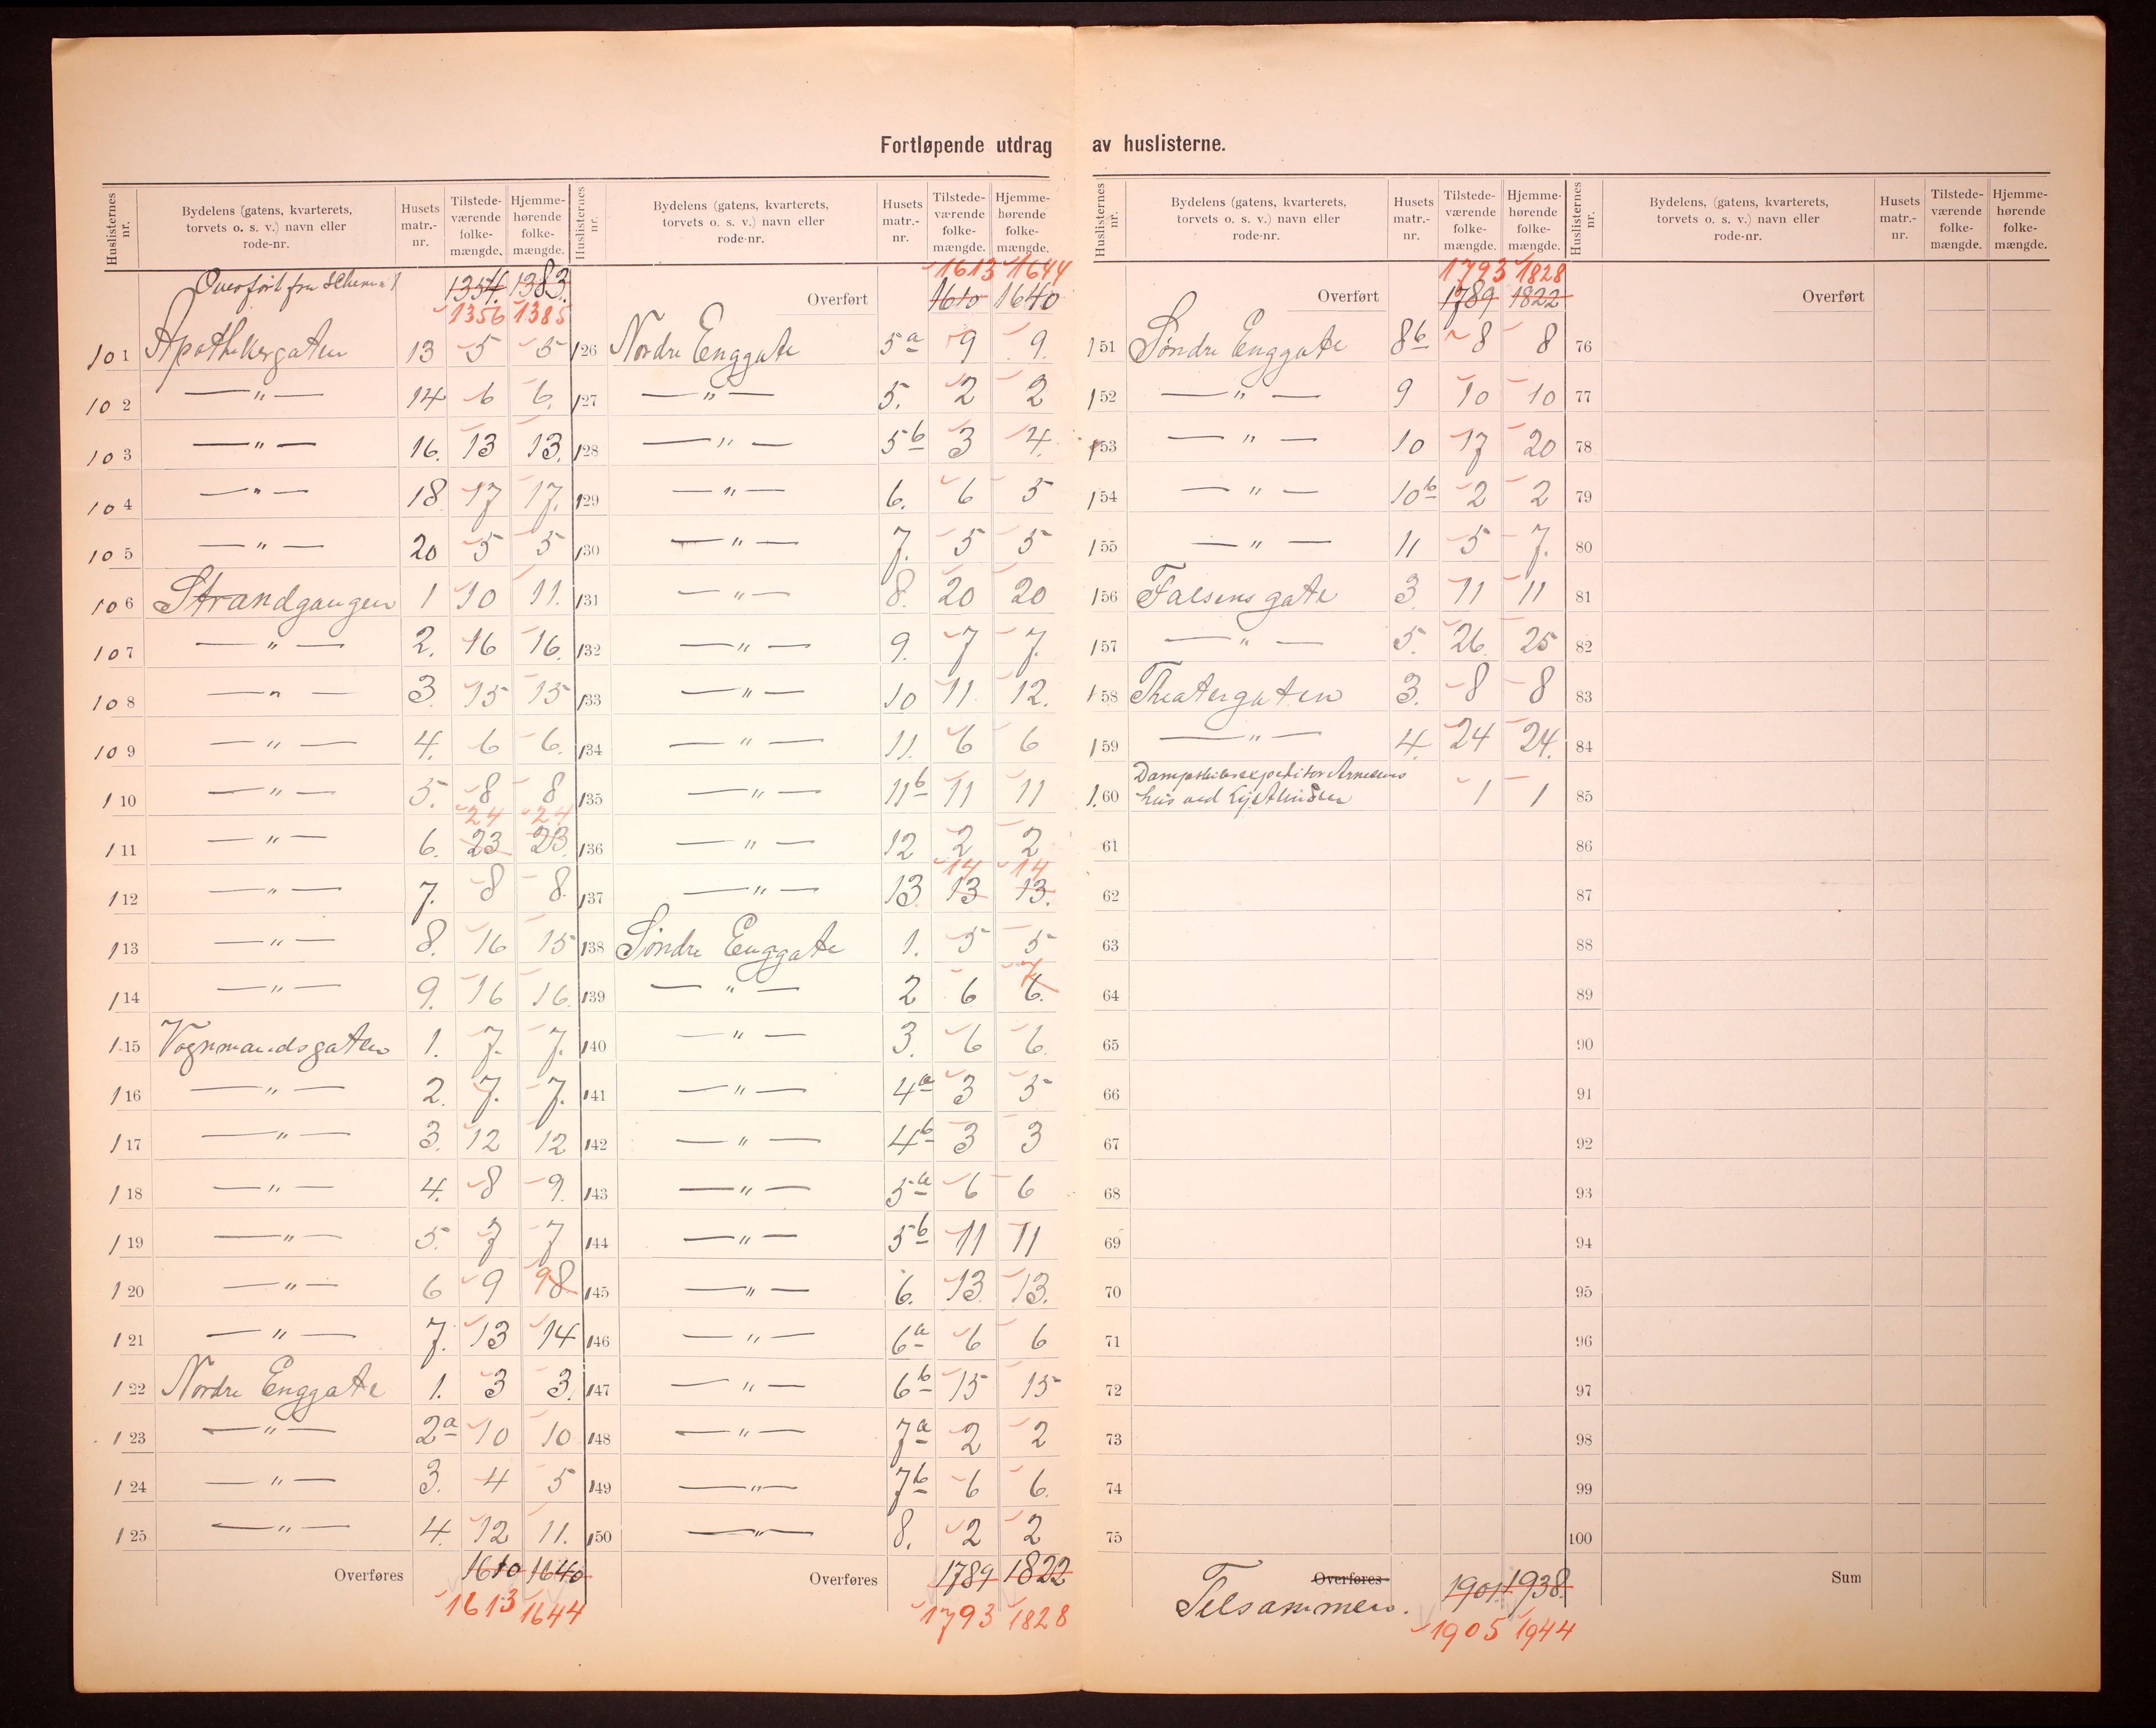 Fortløpende utdrag av huslisterne.
Huslisternes nr. | Bydelens (gatens, kvarterets, torvets o. s. v.) navn eller rode-nr. | Husets matr.-nr. | Tilstede-værende folke-mængde. | Hjemme-hørende folke-mængde.
Overført fra Skema 1 1354. 1383.
1356 1385
101 Apothekergaten 13 5 5
102 —"— 14 6 6.
103 —"— 16. 13 13.
104 —"— 18 17 17.
105 —"— 20 5 5
106 Strandgangen 1 10 11.
107 —"— 2. 16 16.
108 —"— 3. 15 15
109 —"— 4. 6 6.
110 —"— 5. 8 8
24 24
111 —"— 6. 23 23.
112 —"— 7. 8 8.
113 —"— 8. 16 15
114 —"— 9. 16 16.
115 Vognmandsgaten 1. 7. 7.
116 —"— 2. 7. 7.
117 —"— 3. 12 12
118 —"— 4. 8 9.
119 —"— 5. 7 7
120 —"— 6 9 9 8
121 —"— 7. 13 14
122 Nordre Enggate 1. 3 3.
123 —"— 2a 10 10
124 —"— 3. 4 5
125 —"— 4. 12 11.
Overføres 1610 1640
1613 1644
Huslisternes nr. | Bydelens (gatens, kvarterets, torvets o. s. v.) navn eller rode-nr. | Husets matr.-nr. | Tilstede-værende folke-mængde. | Hjemme-hørende folke-mængde.
1613 1644
Overført 1610 1640
126 Nordre Enggate 5a 9 9.
127 —"— 5. 2 2
128 —"— 5b 3 4.
129 —"— 6. 6 5
130 —"— 7. 5 5
131 —"— 8. 20 20
132 —"— 9. 7 7.
133 —"— 10 11 12.
134 —"— 11. 6 6
135 —"— 11b 11 11
136 —"— 12 2 2
14 14
137 —"— 13 13 13.
138 Söndre Enggate 1. 5 5
7
139 —"— 2 6 6.
140 —"— 3. 6 6.
141 —"— 4a 3 5
142 —"— 4b 3 3
143 —"— 5a 6 6
144 —"— 5b 11 11
145 —"— 6. 13 13.
146 —"— 6a 6 6
147 —"— 6b 15 15
148 —"— 7a 2 2
149 —"— 7b 6 6.
150 —"— 8. 2 2
Overføres 1789 1822
1793 1828
Huslisternes nr. | Bydelens (gatens, kvarterets, torvets o. s. v.) navn eller rode-nr. | Husets matr.-nr. | Tilstede-værende folke-mængde. | Hjemme-hørende folke-mængde.
1793 1828
Overført 1789 1822
151 Söndre Enggate 8b 8 8
152 —"— 9 10 10
153 —"— 10 17 20
154 —"— 10b 2 2
155 —"— 11 5 7.
156 Falsens gate 3. 11 11
157 —"— 5. 26. 25
158 Theatergaten 3. 8 8
159 —"— 4. 24 24.
Dampskibsexpeditor
160 hus ved 1 1
61
62
63
64
65
66
67
68
69
70
71
72
73
74
75
Overføres 1901 1938.
Tilsammen. 1905 1944
Huslisternes nr. | Bydelens, (gatens, kvarterets, torvets o. s. v.) navn eller rode-nr. | Husets matr.-nr. | Tilstede-værende folke-mængde. | Hjemme-hørende folke-mængde.
Overført
76
77
78
79
80
81
82
83
84
85
86
87
88
89
90
91
92
93
94
95
96
97
98
99
100
Sum